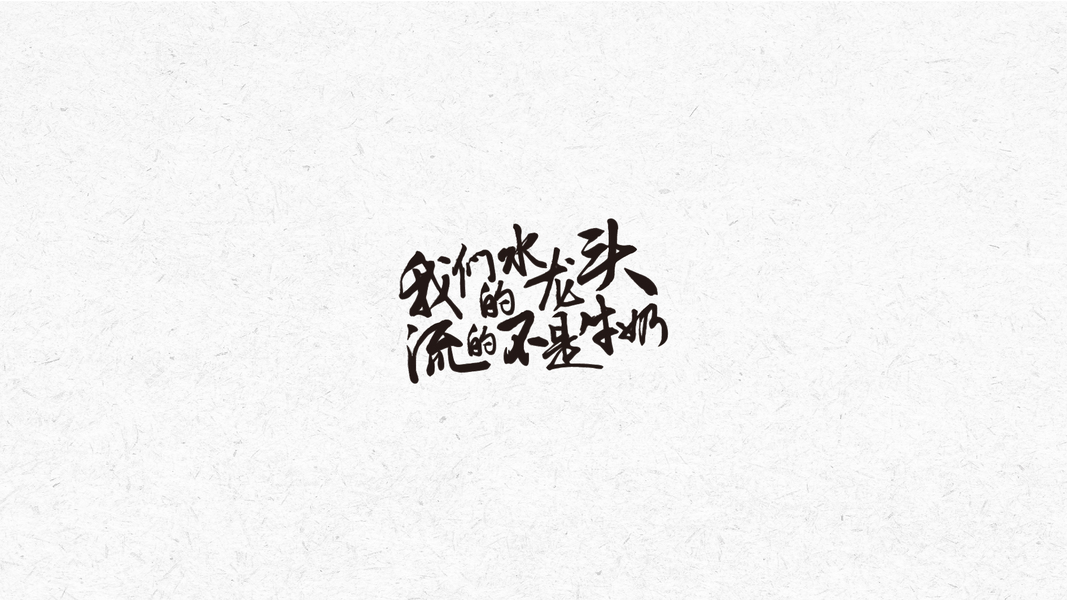 我们的水龙头
流的不是牛奶